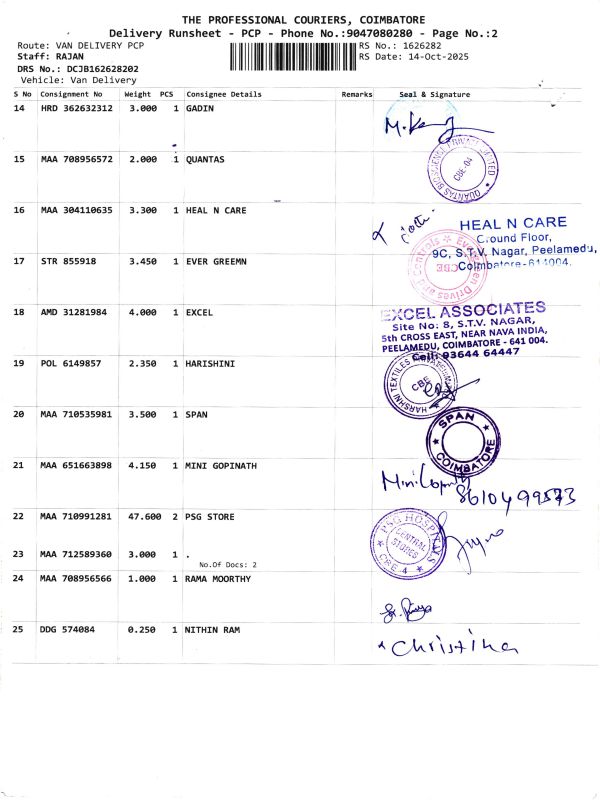 THE PROFESSIONAL COURIERS, COIMBATORE
Delivery Runsheet - PCP - Phone No.:9047080280 - Page No.:2
Route: VAN DELIVERY PCP RS No.: 1626282
Staff: RAJAN RS Date: 14-Oct-2025
DRS No.: DCJB162628202
Vehicle: Van Delivery
S No Consignment No Weight PCS Consignee Details Remarks Seal & Signature
14 HRD 362632312 3.000 1 GADIN
15 MAA 708956572 2.000 1 QUANTAS
QUANTAS BIOSCIENCE PRIVATE LIMITED
CBE-04
16 MAA 304110635 3.300 1 HEAL N CARE
HEAL N CARE
Ground Floor,
9C, S.T.V. Nagar, Peelamedu,
Coimbatore-614004.
17 STR 855918 3.450 1 EVER GREEMN
Evergreen Drives and Controls
CBE
18 AMD 31281984 4.000 1 EXCEL
EXCEL ASSOCIATES
Site No: 8, S.T.V. NAGAR,
5th CROSS EAST, NEAR NAVA INDIA,
PEELAMEDU, COIMBATORE - 641 004.
Cell: 93644 64447
19 POL 6149857 2.350 1 HARISHINI
HARSHNI TEXTILES
CBE
20 MAA 710535981 3.500 1 SPAN
SPAN
COIMBATORE
21 MAA 651663898 4.150 1 MINI GOPINATH
Mini
8610499573
22 MAA 710991281 47.600 2 PSG STORE
PSG HOSPITALS
CENTRAL
STORES
CBE-4
23 MAA 712589360 3.000 1 .
No.Of Docs: 2
24 MAA 708956566 1.000 1 RAMA MOORTHY
25 DDG 574084 0.250 1 NITHIN RAM
Christina